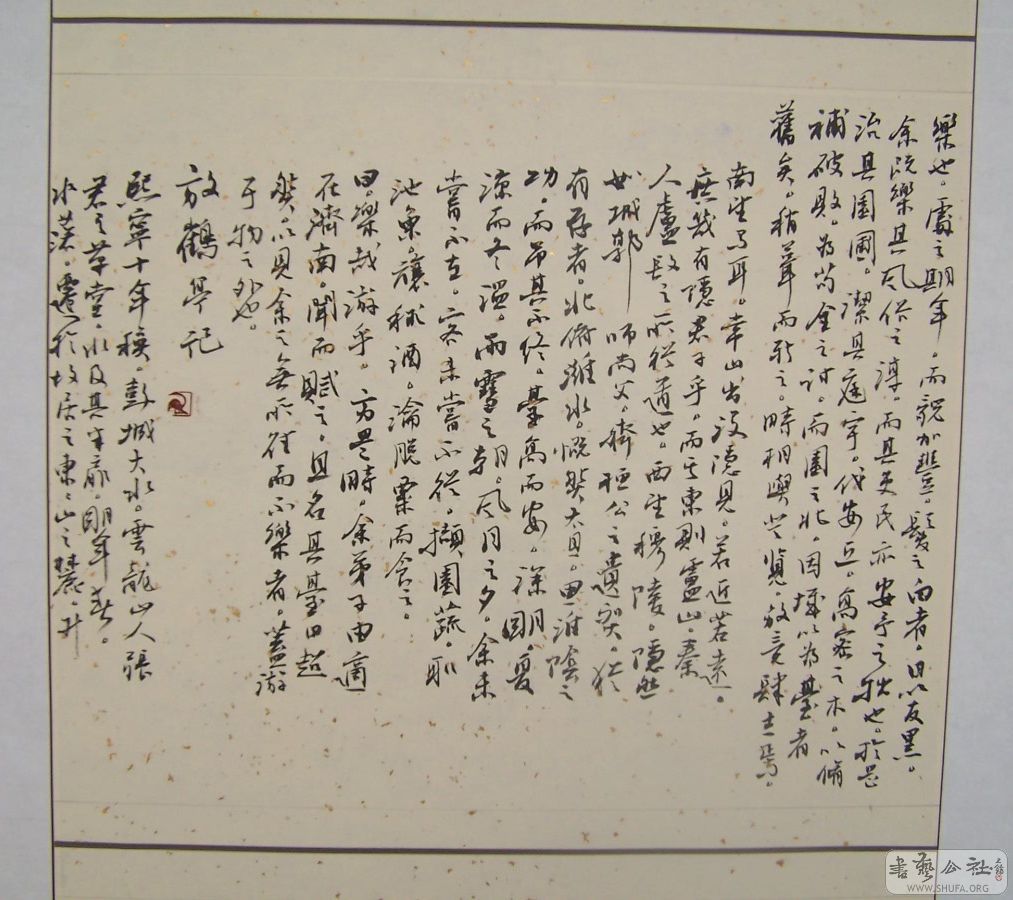 樂也。處之期年。而貌加豐。髮之白者。日以反黑。
余既樂其風俗之淳。而其吏民亦安予之拙也。於是
治其園圃。潔其庭宇。伐安丘。高密之木。以脩
補破敗。為苟全之計。而園之北。因城以為臺者
舊矣。稍葺而新之。時相與登覽。放意肆志焉。
南望馬耳。常山。出沒隱見。若近若遠。
庶幾有隱君子乎。而其東則盧山。秦
人盧敖之所從遁也。西望穆陵。隱然
如城郭。師尚父。齊桓公之遺烈。猶
有存者。北俯濰水。慨然太息。思淮陰之
功。而弔其不終。臺高而安。深而明。夏
涼而冬溫。雨雪之朝。風月之夕。余未
嘗不在。客未嘗不從。擷園蔬。取
池魚。釀秫酒。瀹脫粟而食之。
曰。樂哉游乎。方是時。余弟子由適
在濟南。聞而賦之。且名其臺曰超
然。以見余之無所往而不樂者。蓋游
于物之外也。
放鶴亭記
熙寧十年秋。彭城大水。雲龍山人張
君之草堂。水及其半扉。明年春。
水落。遷於故居之東。東山之麓。升
書藝公社
WWW.SHUFA.ORG